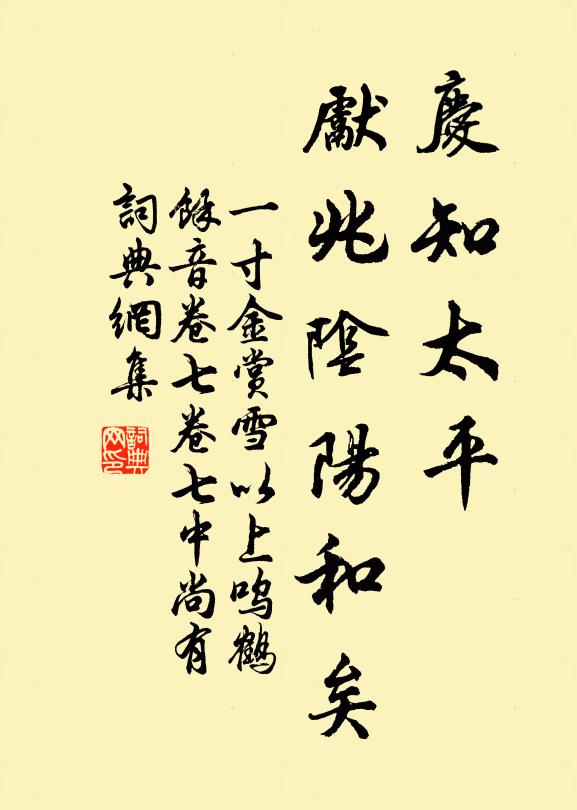 慶知太平
獻兆陰陽和矣
一寸金賞雪以上鳴鶴
餘音卷七卷七中尚有
詞典網集
詞典网印